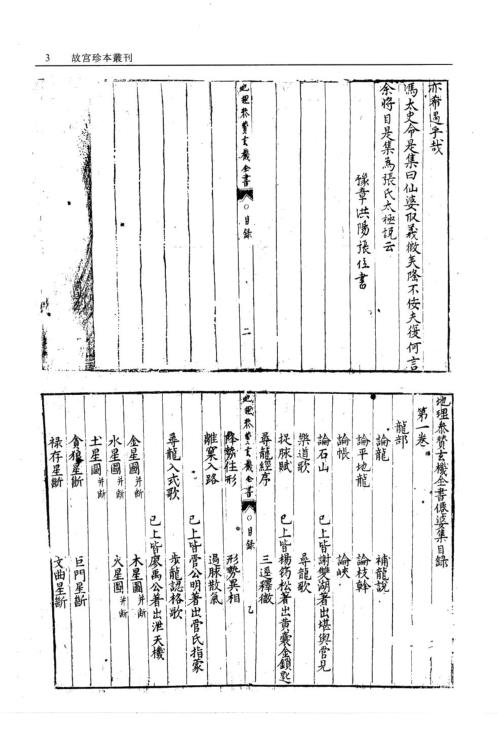 3 故宮珍本叢刊
亦希遇乎哉
馮太史命是集曰仙婆取義微矣隆不佞夫復何言
余將目是集為張氏太極説云
豫章洪陽張位書
地理參贊玄機全書 ○目錄 二
地理參贊玄機全書僊婆集目錄
第一卷
龍部
論龍 補龍説
論平地龍 論枝幹
論帳 論峽
論石山 已上皆謝雙湖著出堪輿管見
樂道歌 尋龍歌
捉脉賦 已上皆楊筠松著出黃囊金鎖匙
尋龍經序 三逕釋微
地理參贊玄機全書 ○目錄
勢住形 形勢異相
離窠入路 過脉散氣
已上皆管公明著出管氏指蒙
尋龍入式歌 步龍認格歌
已上皆廖禹公著出泄天機
金星圖并斷 木星圖并斷
水星圖并斷 火星圖并斷
土星圖并斷
貪狼星斷 巨門星斷
祿存星斷 文曲星斷